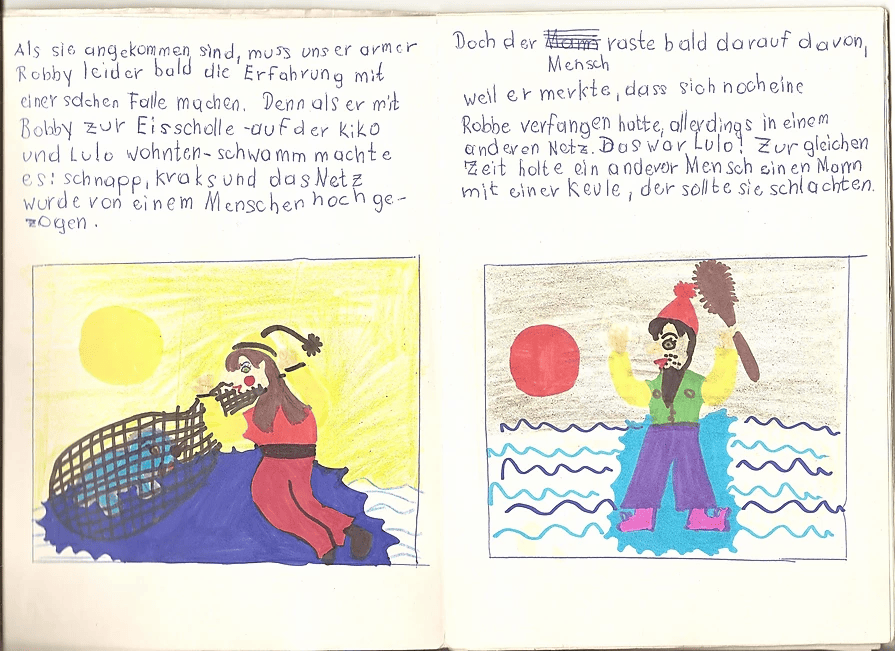 Als sie angekommen sind, muss unser armer
Robby leider bald die Erfahrung mit
einer solchen Falle machen. Denn als er mit
Bobby zur Eisscholle -auf der Kiko
und Lulo wohnten- schwamm machte
es: schnapp, kraks und das Netz
wurde von einem Menschen hoch ge-
zogen.
Doch der Mann raste bald darauf davon,
Mensch
weil er merkte, dass sich noch eine
Robbe verfangen hatte, allerdings in einem
anderen Netz. Das war Lulo! Zur gleichen
Zeit holte ein anderer Mensch einen Mann
mit einer Keule, der sollte sie schlachten.